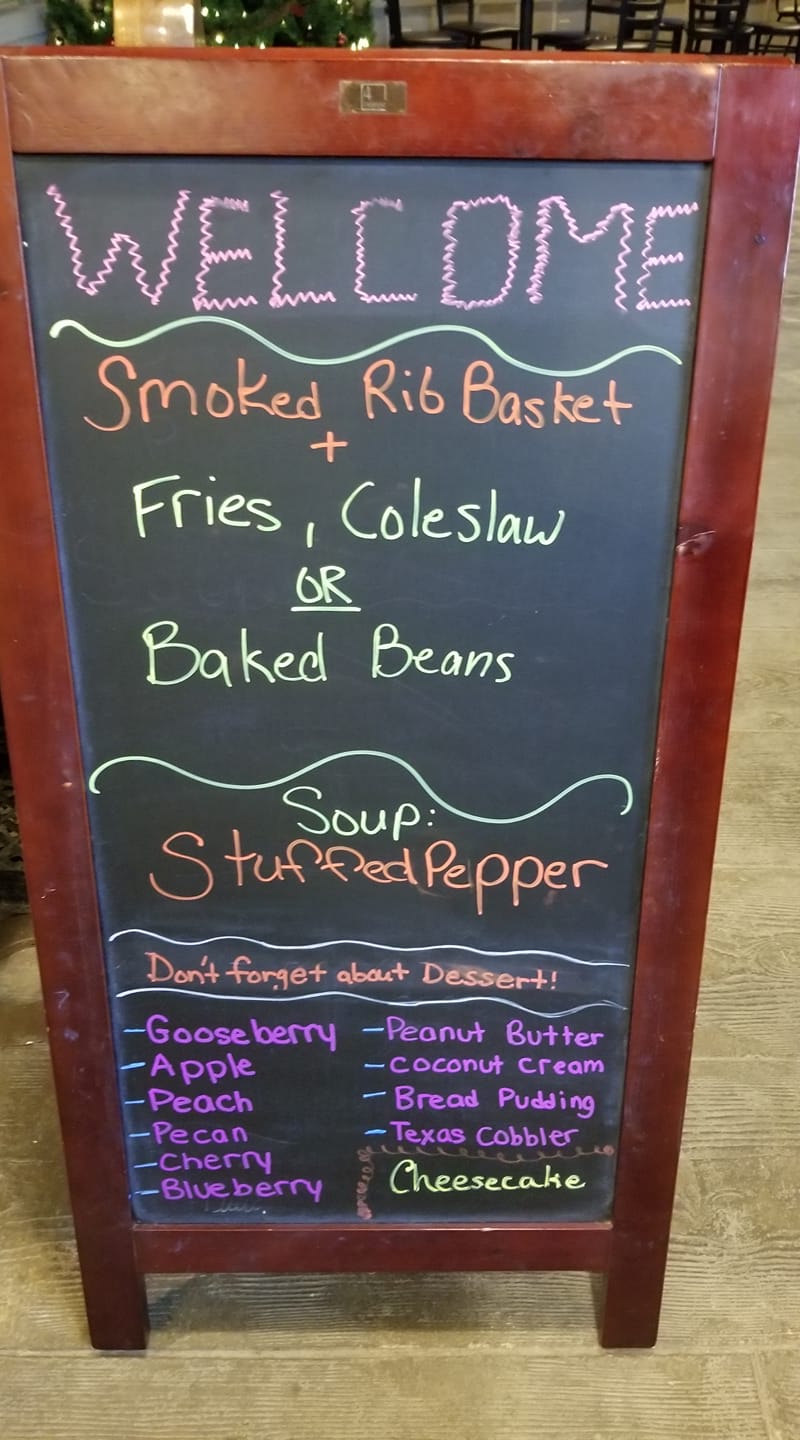 WELCOME
Smoked Rib Basket
+
Fries, Coleslaw
OR
Baked Beans
Soup:
Stuffed Pepper
Don't forget about Dessert!
-Gooseberry
-Apple
-Peach
-Pecan
-Cherry
-Blueberry
-Peanut Butter
-Coconut Cream
-Bread Pudding
-Texas Cobbler
Cheesecake